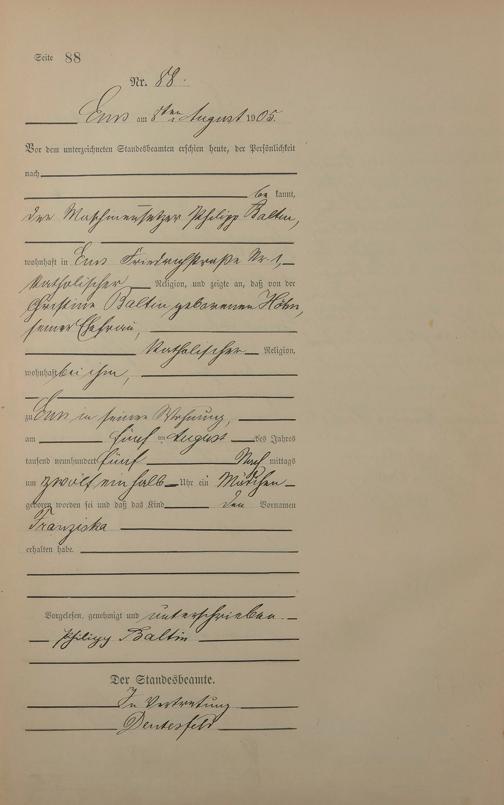 Seite 88
Nr. 88.
Ems am 8ten August 1905.
Vor dem unterzeichneten Standesbeamten erschien heute, der Persönlichkeit
nach
be kannt,
der Maschinensetzer Philipp Baltin,
wohnhaft in Ems Friedrichstraße Nr. 1,
katholischer Religion, und zeigte an, daß von der
Christine Baltin geborenen Höhn,
seiner Ehefrau,
katholischer Religion,
wohnhaft bei ihm,
zu Ems in seiner Wohnung,
am fünf ten August des Jahres
tausend neunhundert fünf Nach mittags
um zwölf einhalb Uhr ein Mädchen
geboren worden sei und daß das Kind den Vornamen
Franziska
erhalten habe.
Vorgelesen, genehmigt und unterschrieben.
Philipp Baltin
Der Standesbeamte.
In Vertretung